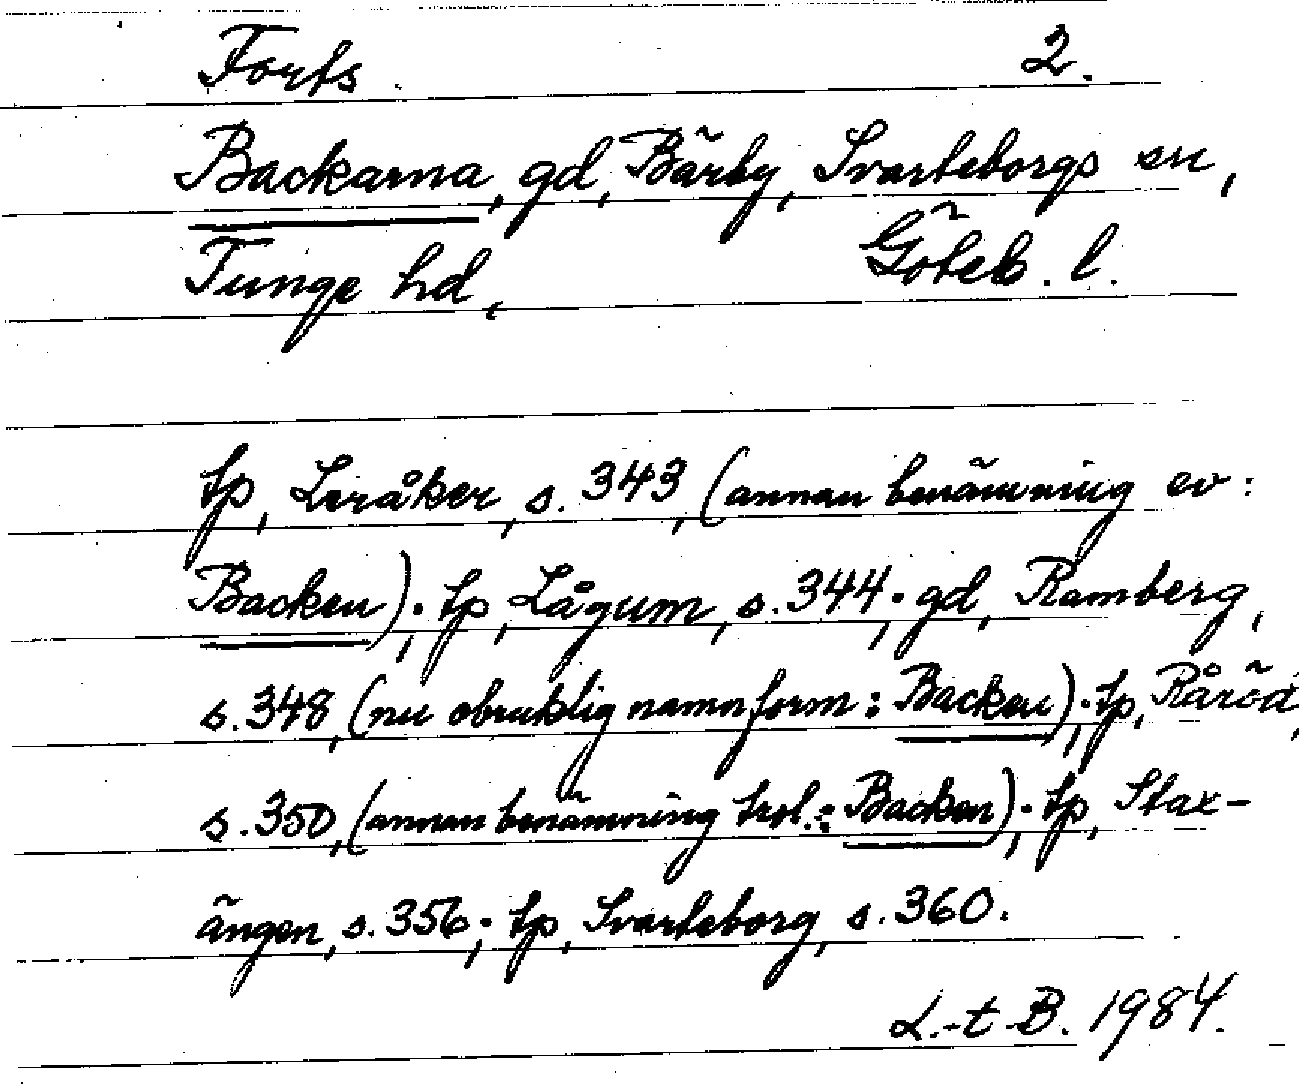 Forts. 2.
Backarna, gd, Bärby, Svarteborgs sn,
Tunge hd, Göteb. l.
tp, Leråker, s. 343, (annan benämning ev:
Backen); tp, Lågum, s. 344; gd, Ramberg,
s. 348, (nu obruklig namnform: Backen); tp, Råröd,
s. 350, (annan benämning trol.: Backen); tp, Stax-
ängen, s. 356; tp, Svarteborg, s. 360.
L.-t B. 1984.